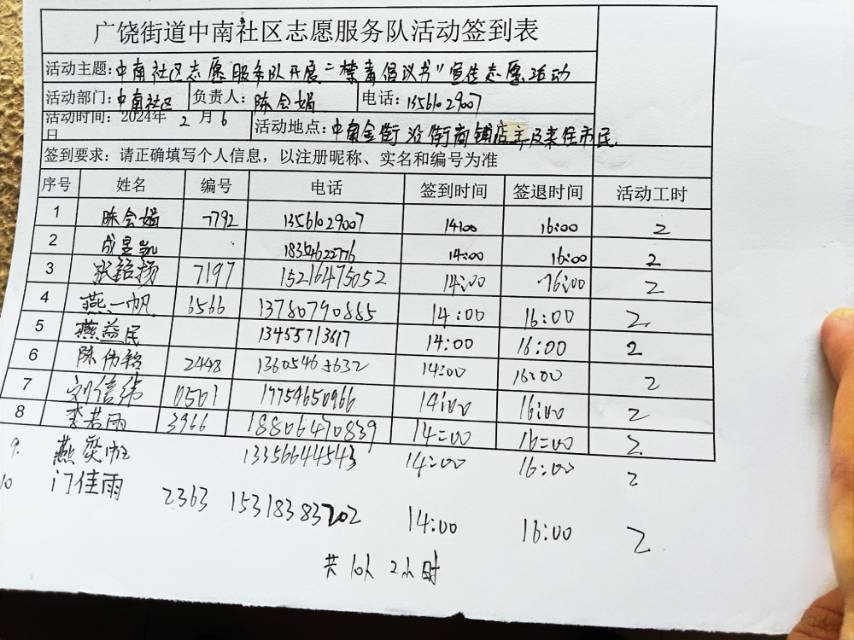 广饶街道中南社区志愿服务队活动签到表
活动主题：中南社区志愿服务队开展“禁毒倡议书”宣传志愿活动
活动部门：中南社区 负责人：陈会娟 电话：13561029007
活动时间：2024年 2 月 6 日 活动地点：中南金街沿街商铺店主及来往市民
签到要求：请正确填写个人信息，以注册昵称、实名和编号为准
序号 姓名 编号 电话 签到时间 签退时间 活动工时
1 陈会娟 7792 13561029007 14:00 16:00 2
2 18354622776 14:00 16:00 2
3 张铭扬 7197 15216475052 14:00 16:00 2
4 燕一帆 6566 13780790885 14:00 16:00 2
5 燕益民 13455713617 14:00 16:00 2
6 陈伟 2448 14:00 16:00 2
7 刘信纬 0501 17754650966 14:00 16:00 2
8 李若雨 3966 18806470839 14:00 16:00 2
9. 燕 13356644543 14:00 16:00 2
10 门佳雨 2363 15318383202 14:00 16:00 2
共10人 2小时